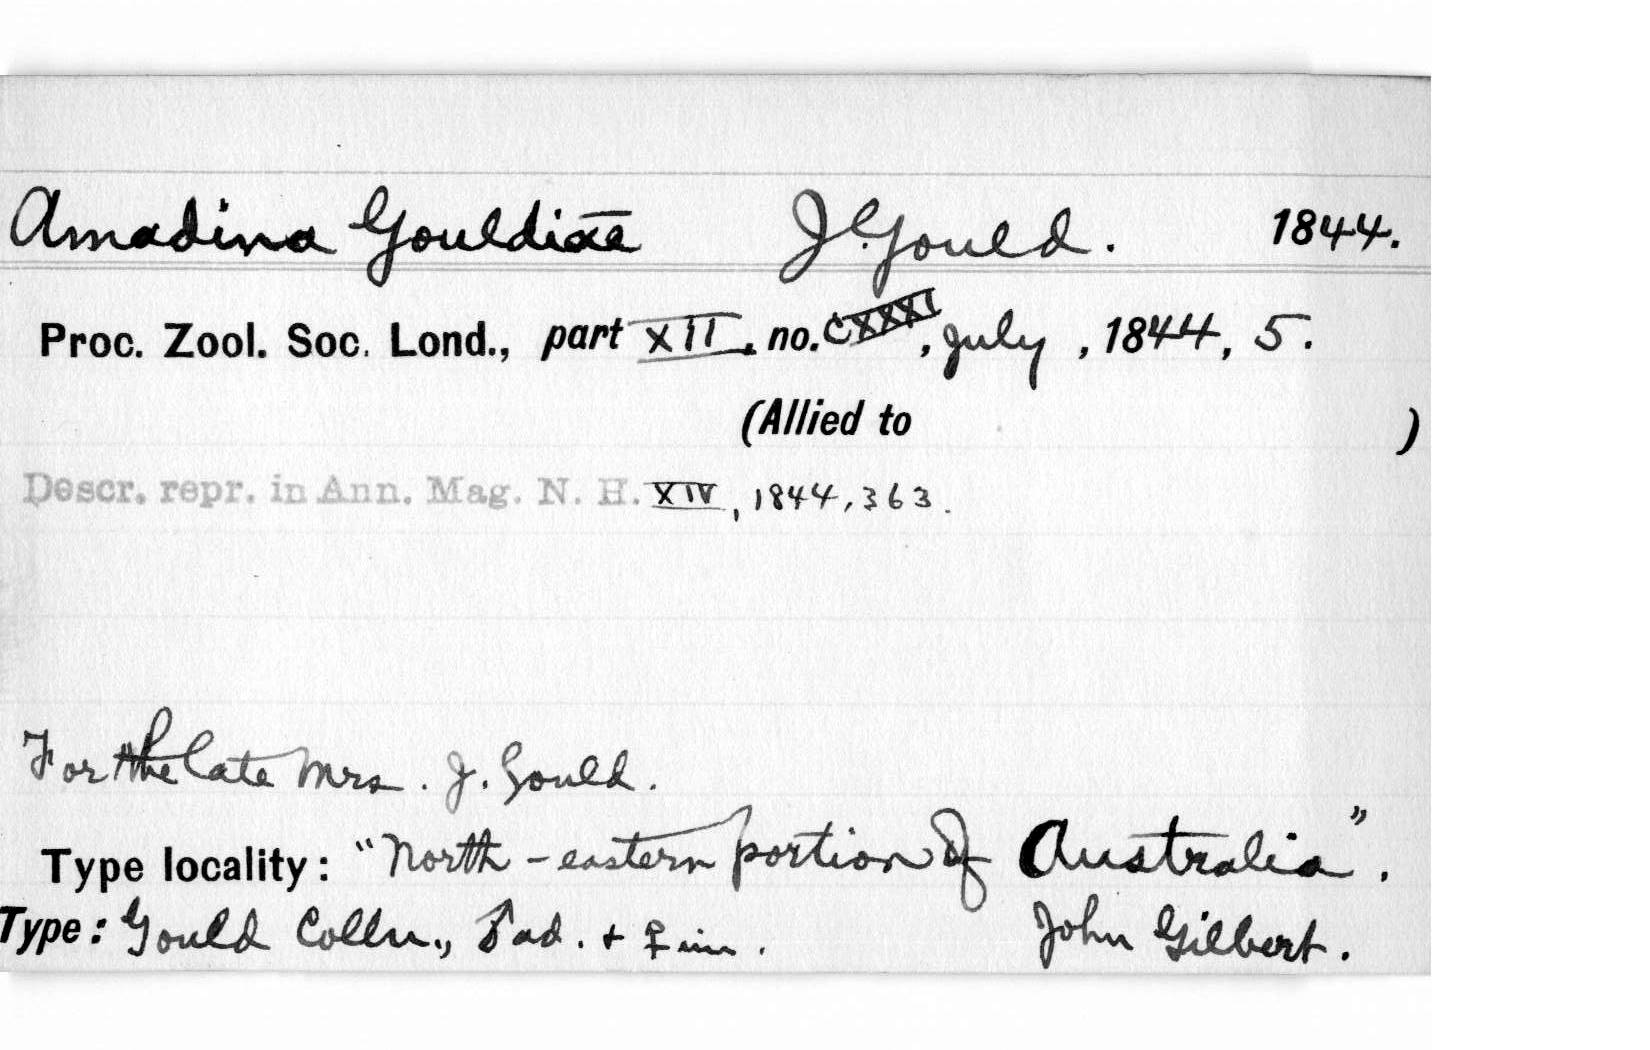 Amadina Gouldiae J. Gould. 1844.
Proc. Zool. Soc. Lond., part XII, no. CXXXI, July, 1844, 5.
(Allied to )
Descr. repr. in Ann. Mag. N. H. XIV, 1844, 363.
For the late Mrs. J. Gould.
Type locality: "North-eastern portion of Australia".
Type: Gould Colln., ♂ ad. + ♀ im. John Gilbert.